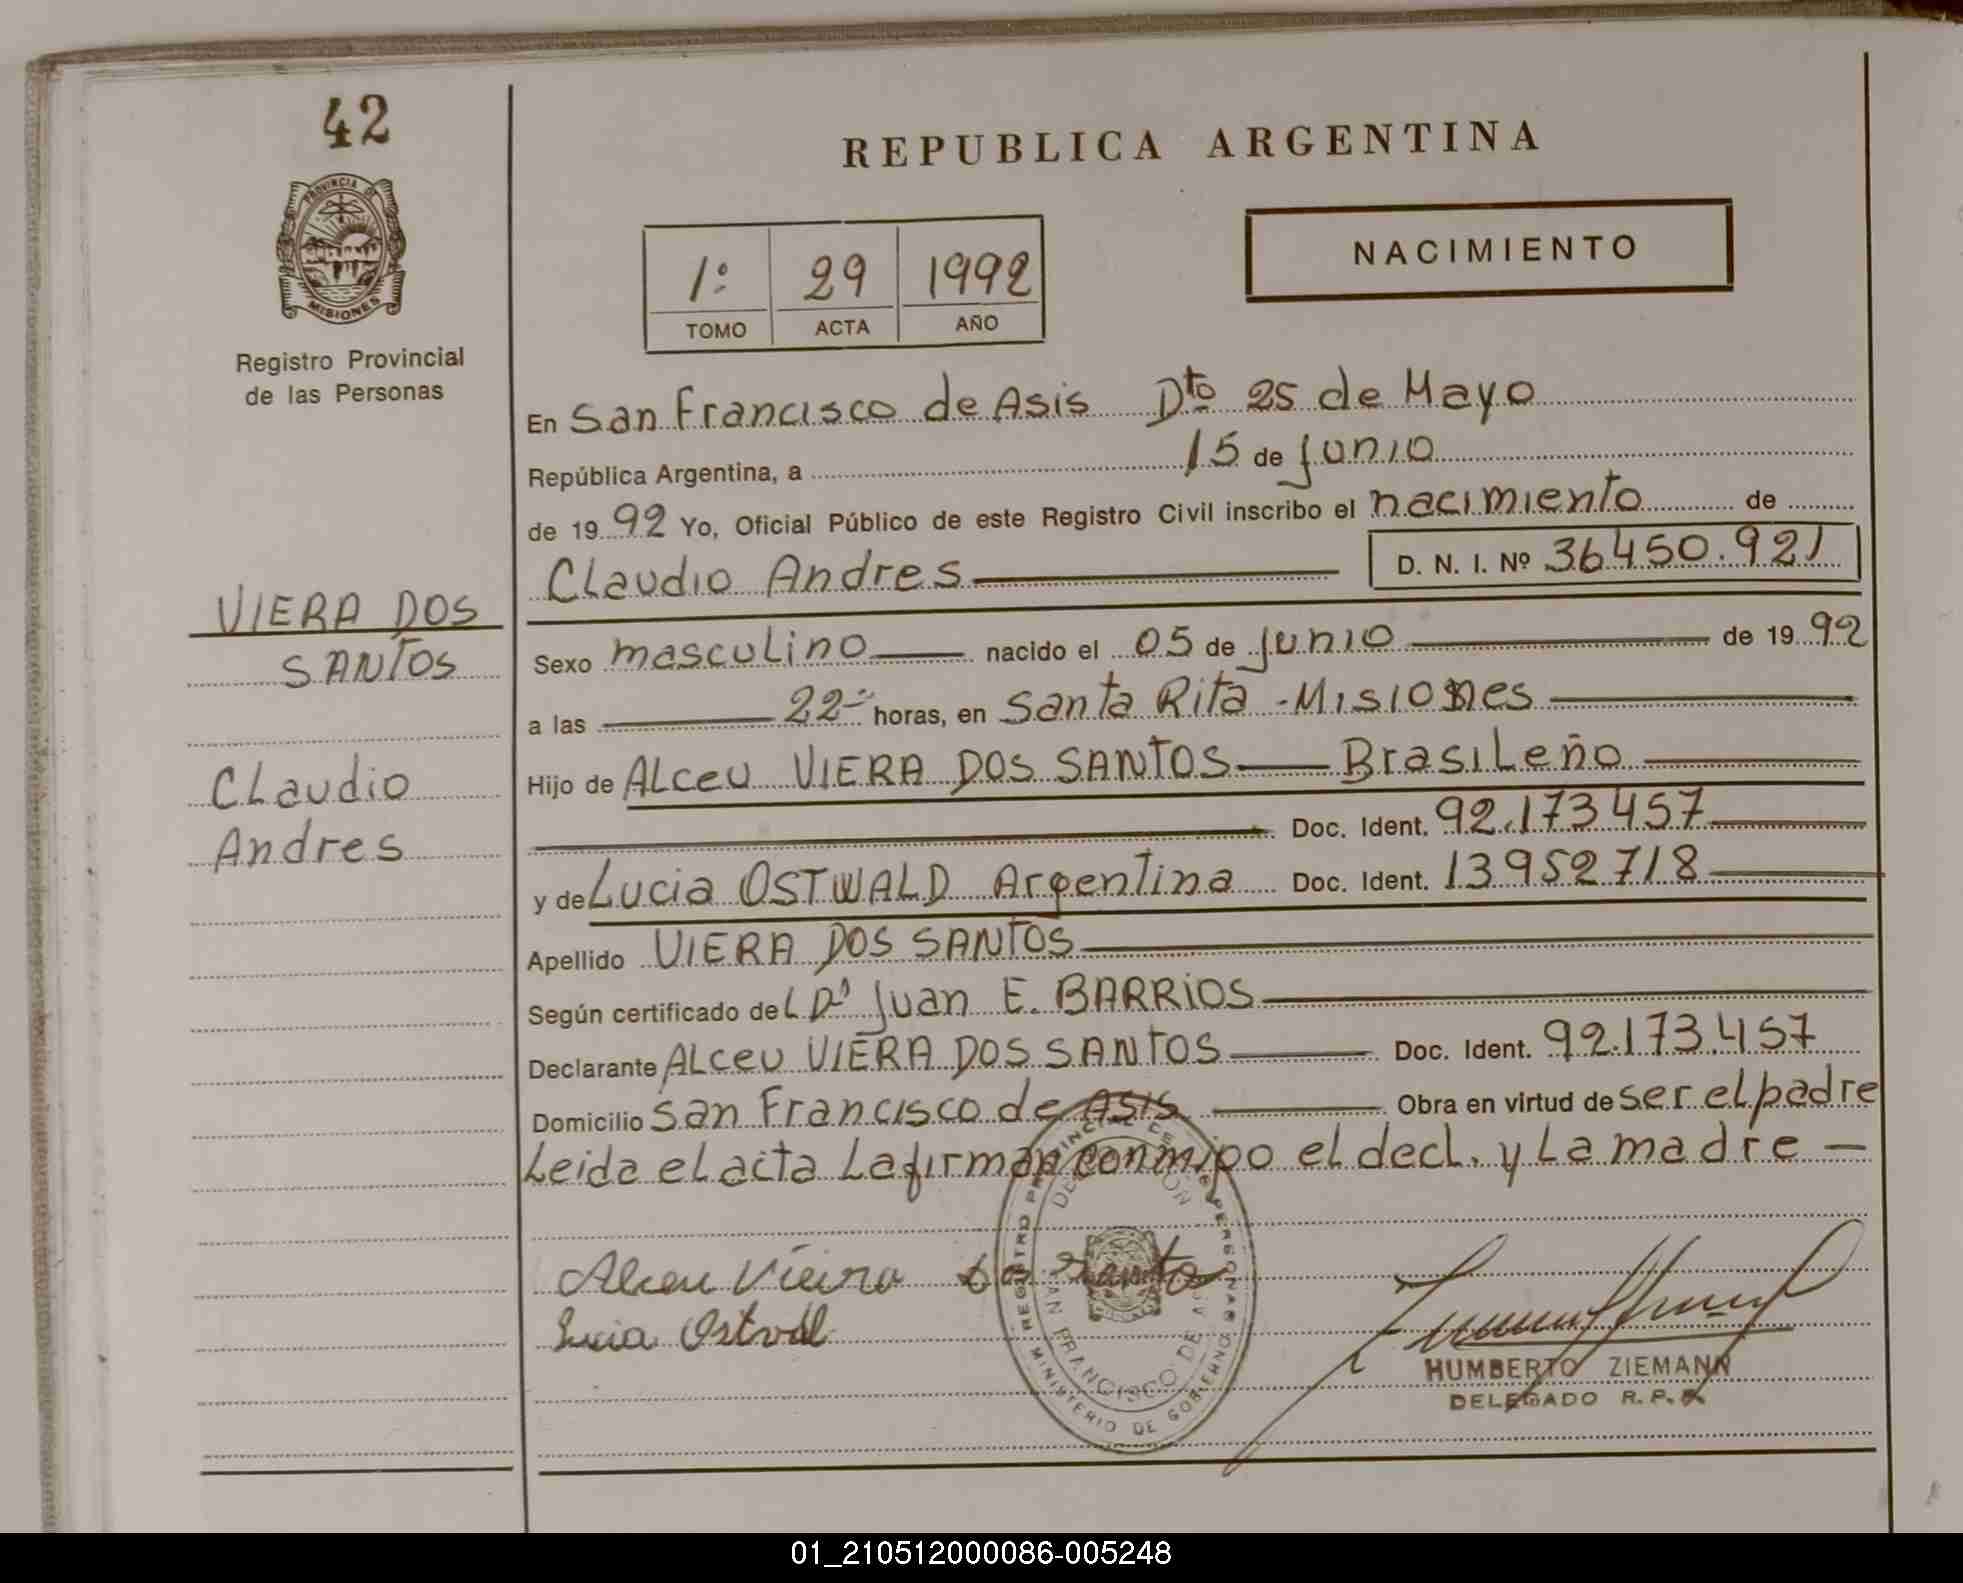 42
PROVINCIA DE
MISIONES
Registro Provincial
de las Personas
VIERA DOS
SANTOS
Claudio
Andres
REPUBLICA ARGENTINA
NACIMIENTO
1º 29 1992
TOMO ACTA AÑO
En San Francisco de Asis Dto 25 de Mayo
República Argentina, a 15 de junio
de 1992 Yo, Oficial Público de este Registro Civil inscribo el nacimiento de
Claudio Andres D. N. I. Nº 36450.921
Sexo masculino nacido el 05 de junio de 1992
a las 22 horas, en Santa Rita - Misiones
Hijo de Alceu VIERA DOS SANTOS Brasileño
Doc. Ident. 92.173457
y de Lucia OSTWALD Argentina Doc. Ident. 13952718
Apellido VIERA DOS SANTOS
Según certificado del Dr Juan E. BARRIOS
Declarante Alceu VIERA DOS SANTOS Doc. Ident. 92.173.457
Domicilio San Francisco de Asis Obra en virtud de ser el padre
Leida el acta la firman conmigo el decl. y la madre
Alceu Vieira dos Santos
Lucia Ostvál
REGISTRO PROVINCIAL DE LAS PERSONAS
DELEGACIÓN
SAN FRANCISCO DE
MINISTERIO DE GOBIERNO
HUMBERTO ZIEMANN
DELEGADO R. P. P.
01_210512000086-005248